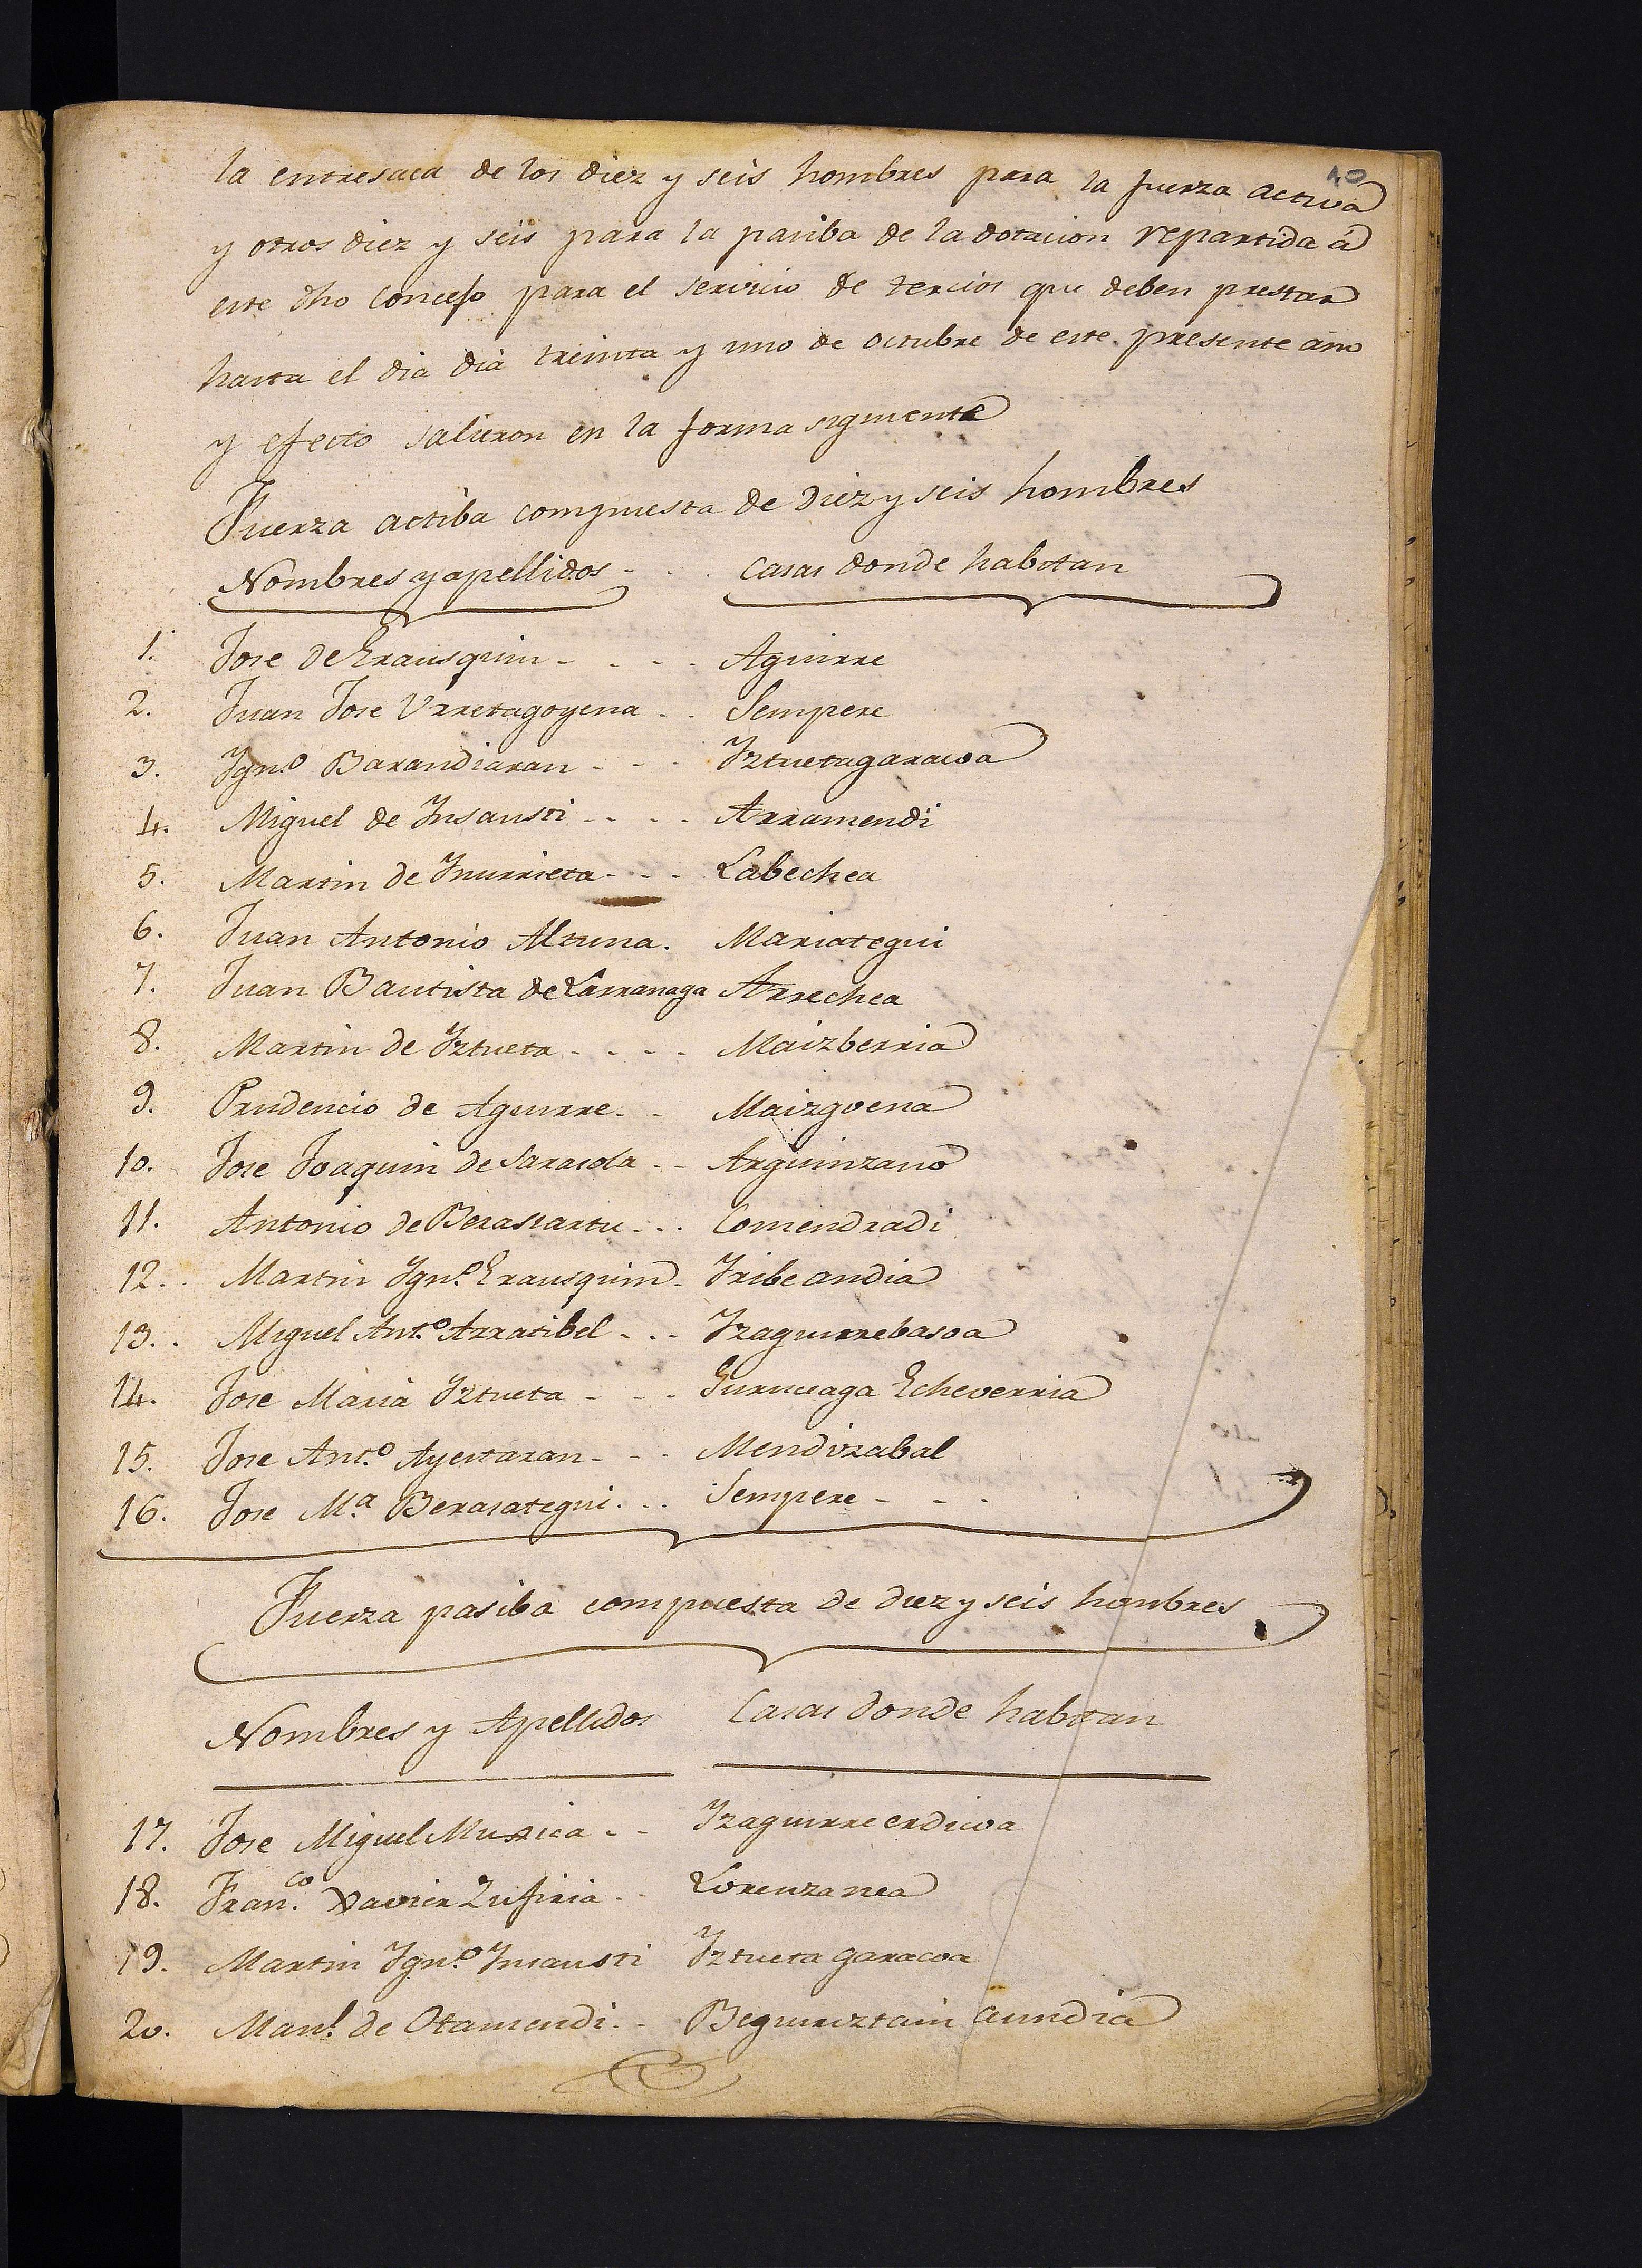 40
la entresaca de los diez y seis hombres para la fuerza activa
y otros diez y seis para la pasiba de la dotacion repartida á
este dho concejo para el servicio de tercios que deben prestar
hasta el dia dia treinta y uno de octubre de este presente año
y efecto salieron en la forma siguiente
Fuerza actiba compuesta de Diez y seis hombres
Nombres y apellidos - . . Casas donde habitan
1. Jose de Erausquin - . - . Aguirre
2. Juan Jose Urretagoyena . . Sempere
3. Ygn.º Barandiaran - - - Yztuetagaracoa
4. Miguel de Ynsausti - . - . Arramendi
5. Martin de Ynurrieta - - . Labechea
6. Juan Antonio Altuna. Mariategui
7. Juan Bautista de Larranaga Arrechea
8. Martin de Yztueta . . - . Maizberria
9. Prudencio de Aguirre. . Maizgoena
10. Jose Joaquin de Sarasola - - Arguinzano
11. Antonio de Berasiartu - . . Comendradi
12. . Martin Ygn.º Erausquin - Yribe andia
13. . Miguel Ant.º Arratibel - . - Yzaguirrebasoa
14. Jose Maria Yztueta - - - Guruceaga Echeverria
15. Jose Ant.º Ayestaran - - . Mendizabal
16. Jose M.ª Berasategui. . . Sempere - - .
Fuerza pasiba compuesta de diez y seis hombres
Nombres y Apellidos Casas donde habitan
17. Jose Miguel Muxica - - Yzaguirre erdicoa
18. Fran.co Xavier Zufiria - . Lorenzanea
19. Martin Ygn.º Yncausti Yztueta garacoa
20. Man.l de Otamendi. . Beguiriztain aundia